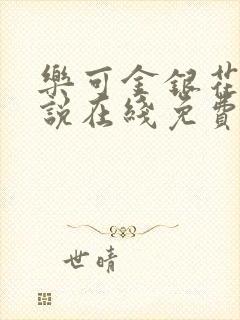 樂可金銀花
說在綫免費
世晴